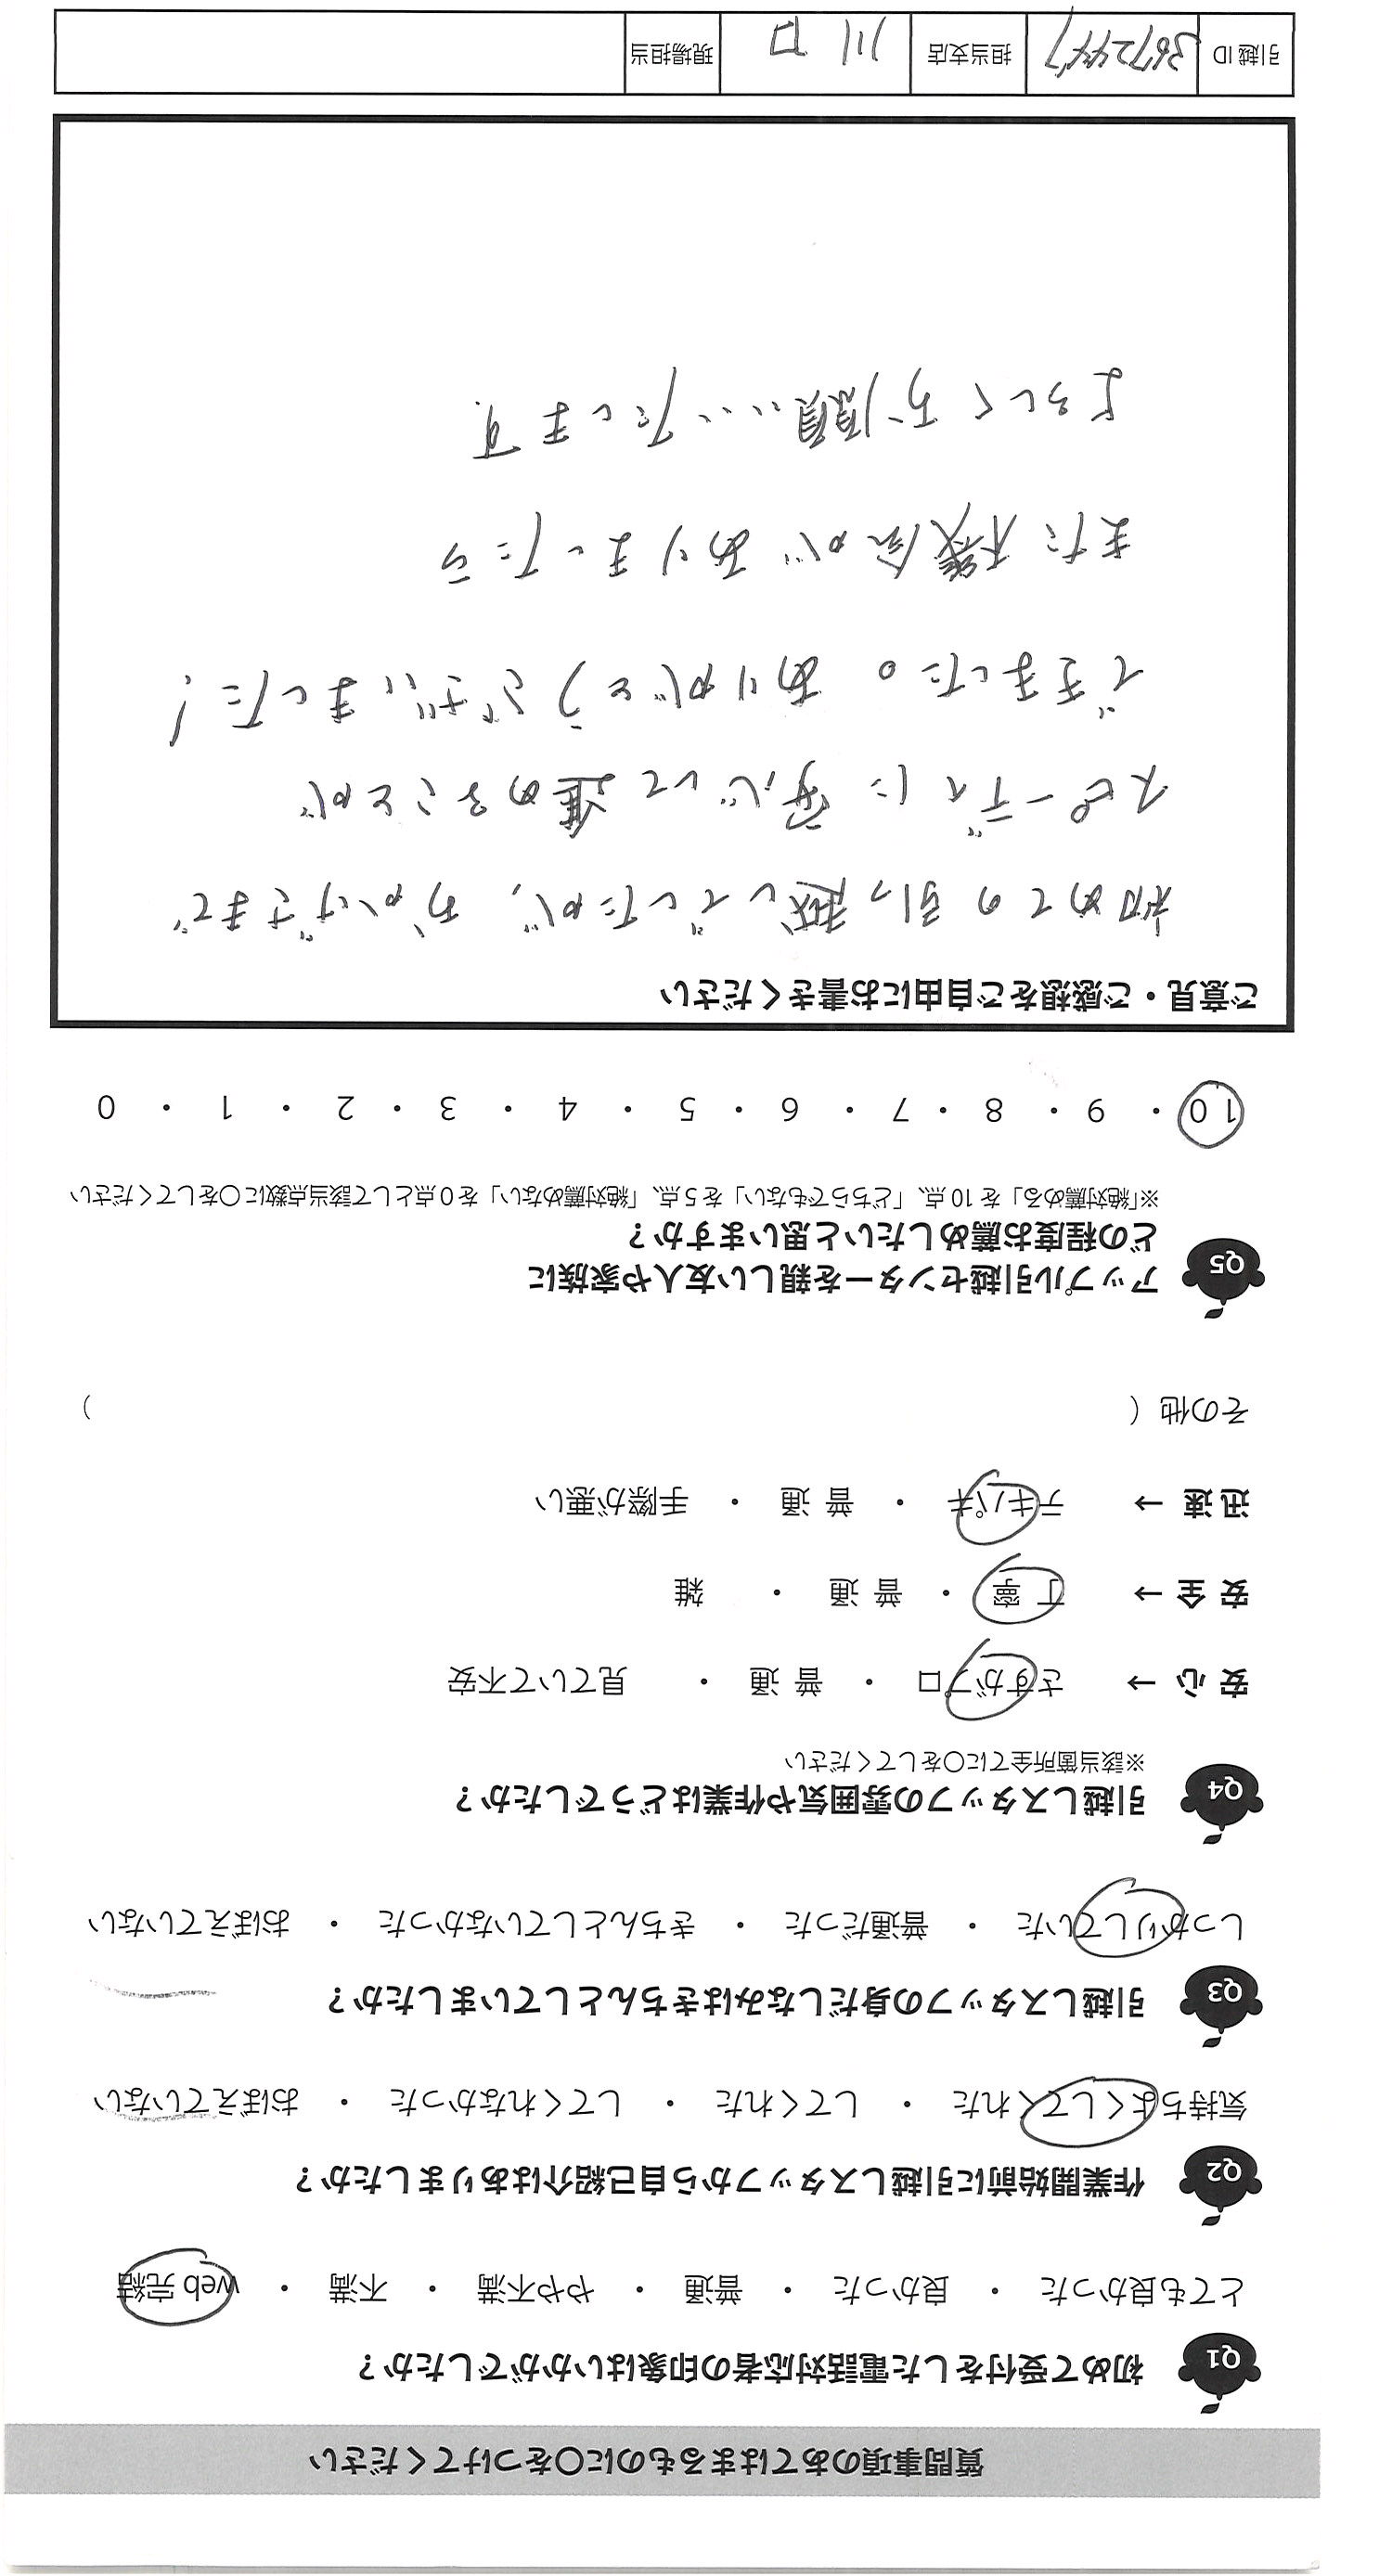 質問事項のあてはまるものに〇をつけてください
Q1 初めて受付をした電話対応者の印象はいかがでしたか？
とても良かった ・ 良かった ・ 普通 ・ やや不満 ・ 不満 ・ web 完結
Q2 作業開始前に引越しスタッフから自己紹介はありましたか？
気持ちよくしてくれた ・ してくれた ・ してくれなかった ・ おぼえていない
Q3 引越しスタッフの身だしなみはきちんとしていましたか？
しっかりしていた ・ 普通だった ・ きちんとしていなかった ・ おぼえていない
Q4 引越しスタッフの雰囲気や作業はどうでしたか？
※該当箇所全てに〇をしてください
安心 → さすがプロ ・ 普通 ・ 見ていて不安
安全 → 丁寧 ・ 普通 ・ 雑
迅速 → テキパキ ・ 普通 ・ 手際が悪い
その他（ ）
Q5 アップル引越センターを親しい友人や家族に
どの程度お薦めしたいと思いますか？
※「絶対薦める」を10点、「どちらでもない」を5点、「絶対薦めない」を0点として該当点数に〇をしてください
10 ・ 9 ・ 8 ・ 7 ・ 6 ・ 5 ・ 4 ・ 3 ・ 2 ・ 1 ・ 0
ご意見・ご感想をご自由にお書きください
初めての引っ越しでしたが、おかげさまで
スピーディに安心して進めることが
できました。ありがとうございました！
また機会がありましたら
よろしくお願いいたします
引越ID 担当支店 川口 現場担当